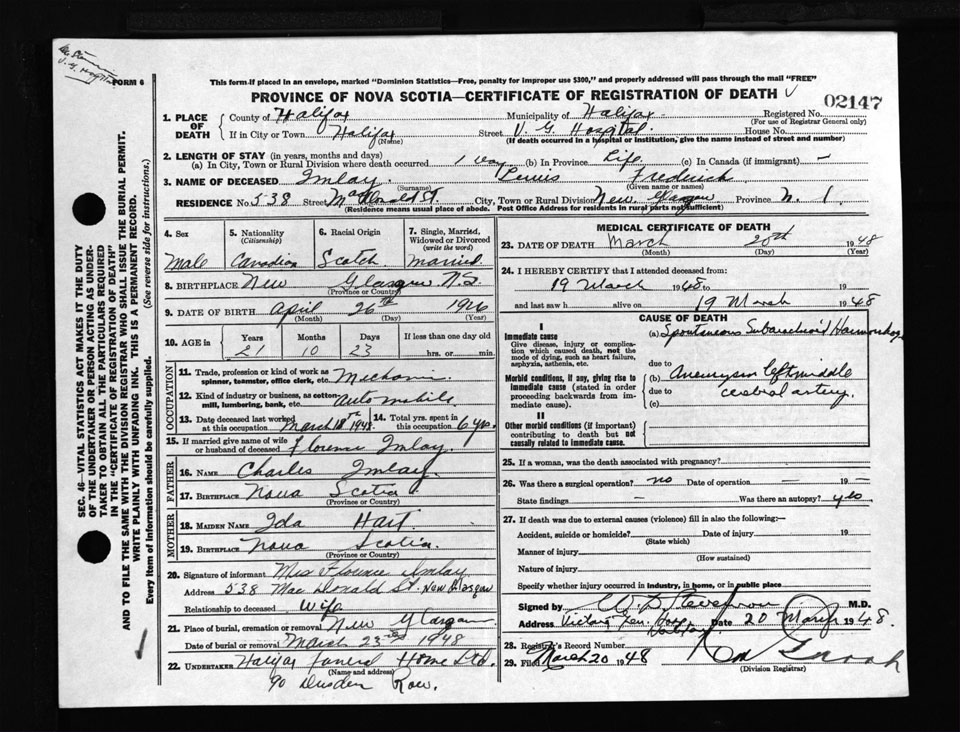 FORM 6
This form if placed in an envelope, marked "Dominion Statistics—Free, penalty for improper use $300," and properly addressed will pass through the mail "FREE"
PROVINCE OF NOVA SCOTIA—CERTIFICATE OF REGISTRATION OF DEATH
02147
1. PLACE OF DEATH
County of Halifax
Municipality of Halifax
Registered No.
(For use of Registrar General only)
If in City or Town Halifax Street V. G. Hospital. House No.
(Name) (If death occurred in a hospital or institution, give the name instead of street and number)
2. LENGTH OF STAY (in years, months and days)
(a) In City, Town or Rural Division where death occurred 1 day (b) In Province Life (c) In Canada (if immigrant) —
3. NAME OF DECEASED Imlay. Lewis Frederick
(Surname) (Given name or names)
RESIDENCE No. 538 Street MacDonald St. City, Town or Rural Division New Glasgow Province N. S.
(Residence means usual place of abode. Post Office Address for residents in rural parts not sufficient)
4. Sex
Male
5. Nationality
(Citizenship)
Canadian
6. Racial Origin
Scotch
7. Single, Married, Widowed or Divorced
(write the word)
Married.
8. BIRTHPLACE New Glasgow N.S.
(Province or Country)
9. DATE OF BIRTH April 26th 1926
(Month) (Day) (Year)
10. AGE in Years Months Days If less than one day old
21 10 23 hrs. or min.
OCCUPATION
11. Trade, profession or kind of work as spinner, teamster, office clerk, etc. Mechanic.
12. Kind of industry or business, as cotton mill, lumbering, bank, etc. Automobile
13. Date deceased last worked at this occupation March 18th 1948.
14. Total yrs. spent in this occupation 6 yrs.
15. If married give name of wife or husband of deceased Florence Imlay.
FATHER
16. NAME Charles Imlay.
17. BIRTHPLACE Nova Scotia
(Province or Country)
MOTHER
18. MAIDEN NAME Ida Hart
19. BIRTHPLACE Nova Scotia.
(Province or Country)
20. Signature of informant Mrs Florence Imlay
Address 538 MacDonald St. New Glasgow
Relationship to deceased Wife
21. Place of burial, cremation or removal New Glasgow
Date of burial or removal March 23rd 1948
22. UNDERTAKER Halifax Funeral Home Ltd.
(Name and address)
90 Dresden Row.
MEDICAL CERTIFICATE OF DEATH
23. DATE OF DEATH March 20th 1948
(Month) (Day) (Year)
24. I HEREBY CERTIFY that I attended deceased from:
19 March 1948 to
and last saw h alive on 19 March 1948
CAUSE OF DEATH
I
Immediate cause
Give disease, injury or complication which caused death, not the mode of dying, such as heart failure, asphyxia, asthenia, etc.
(a) Spontaneous Subarachnoid Haemorrhage
due to
Morbid conditions, if any, giving rise to immediate cause (stated in order proceeding backwards from immediate cause).
(b) Aneurysm left middle
due to cerebral artery.
(c)
II
Other morbid conditions (if important) contributing to death but not causally related to immediate cause.
25. If a woman, was the death associated with pregnancy?
26. Was there a surgical operation? no Date of operation — 19 —
State findings — Was there an autopsy? yes
27. If death was due to external causes (violence) fill in also the following:—
Accident, suicide or homicide? Date of injury 19
(State which)
Manner of injury
(How sustained)
Nature of injury
Specify whether injury occurred in industry, in home, or in public place
Signed by W. D. Stevenson M.D.
Address Victoria Gen. Hosp. Date 20 March 1948.
Halifax
28. Registrar's Record Number
29. Filed March 20 1948
(Division Registrar)
SEC. 46—VITAL STATISTICS ACT MAKES IT THE DUTY OF THE UNDERTAKER OR PERSON ACTING AS UNDERTAKER TO OBTAIN ALL THE PARTICULARS REQUIRED IN THE "CERTIFICATE OF REGISTRATION OF DEATH" AND TO FILE THE SAME WITH THE DIVISION REGISTRAR WHO SHALL ISSUE THE BURIAL PERMIT.
WRITE PLAINLY WITH UNFADING INK. THIS IS A PERMANENT RECORD.
Every item of Information should be carefully supplied. (See reverse side for instructions.)